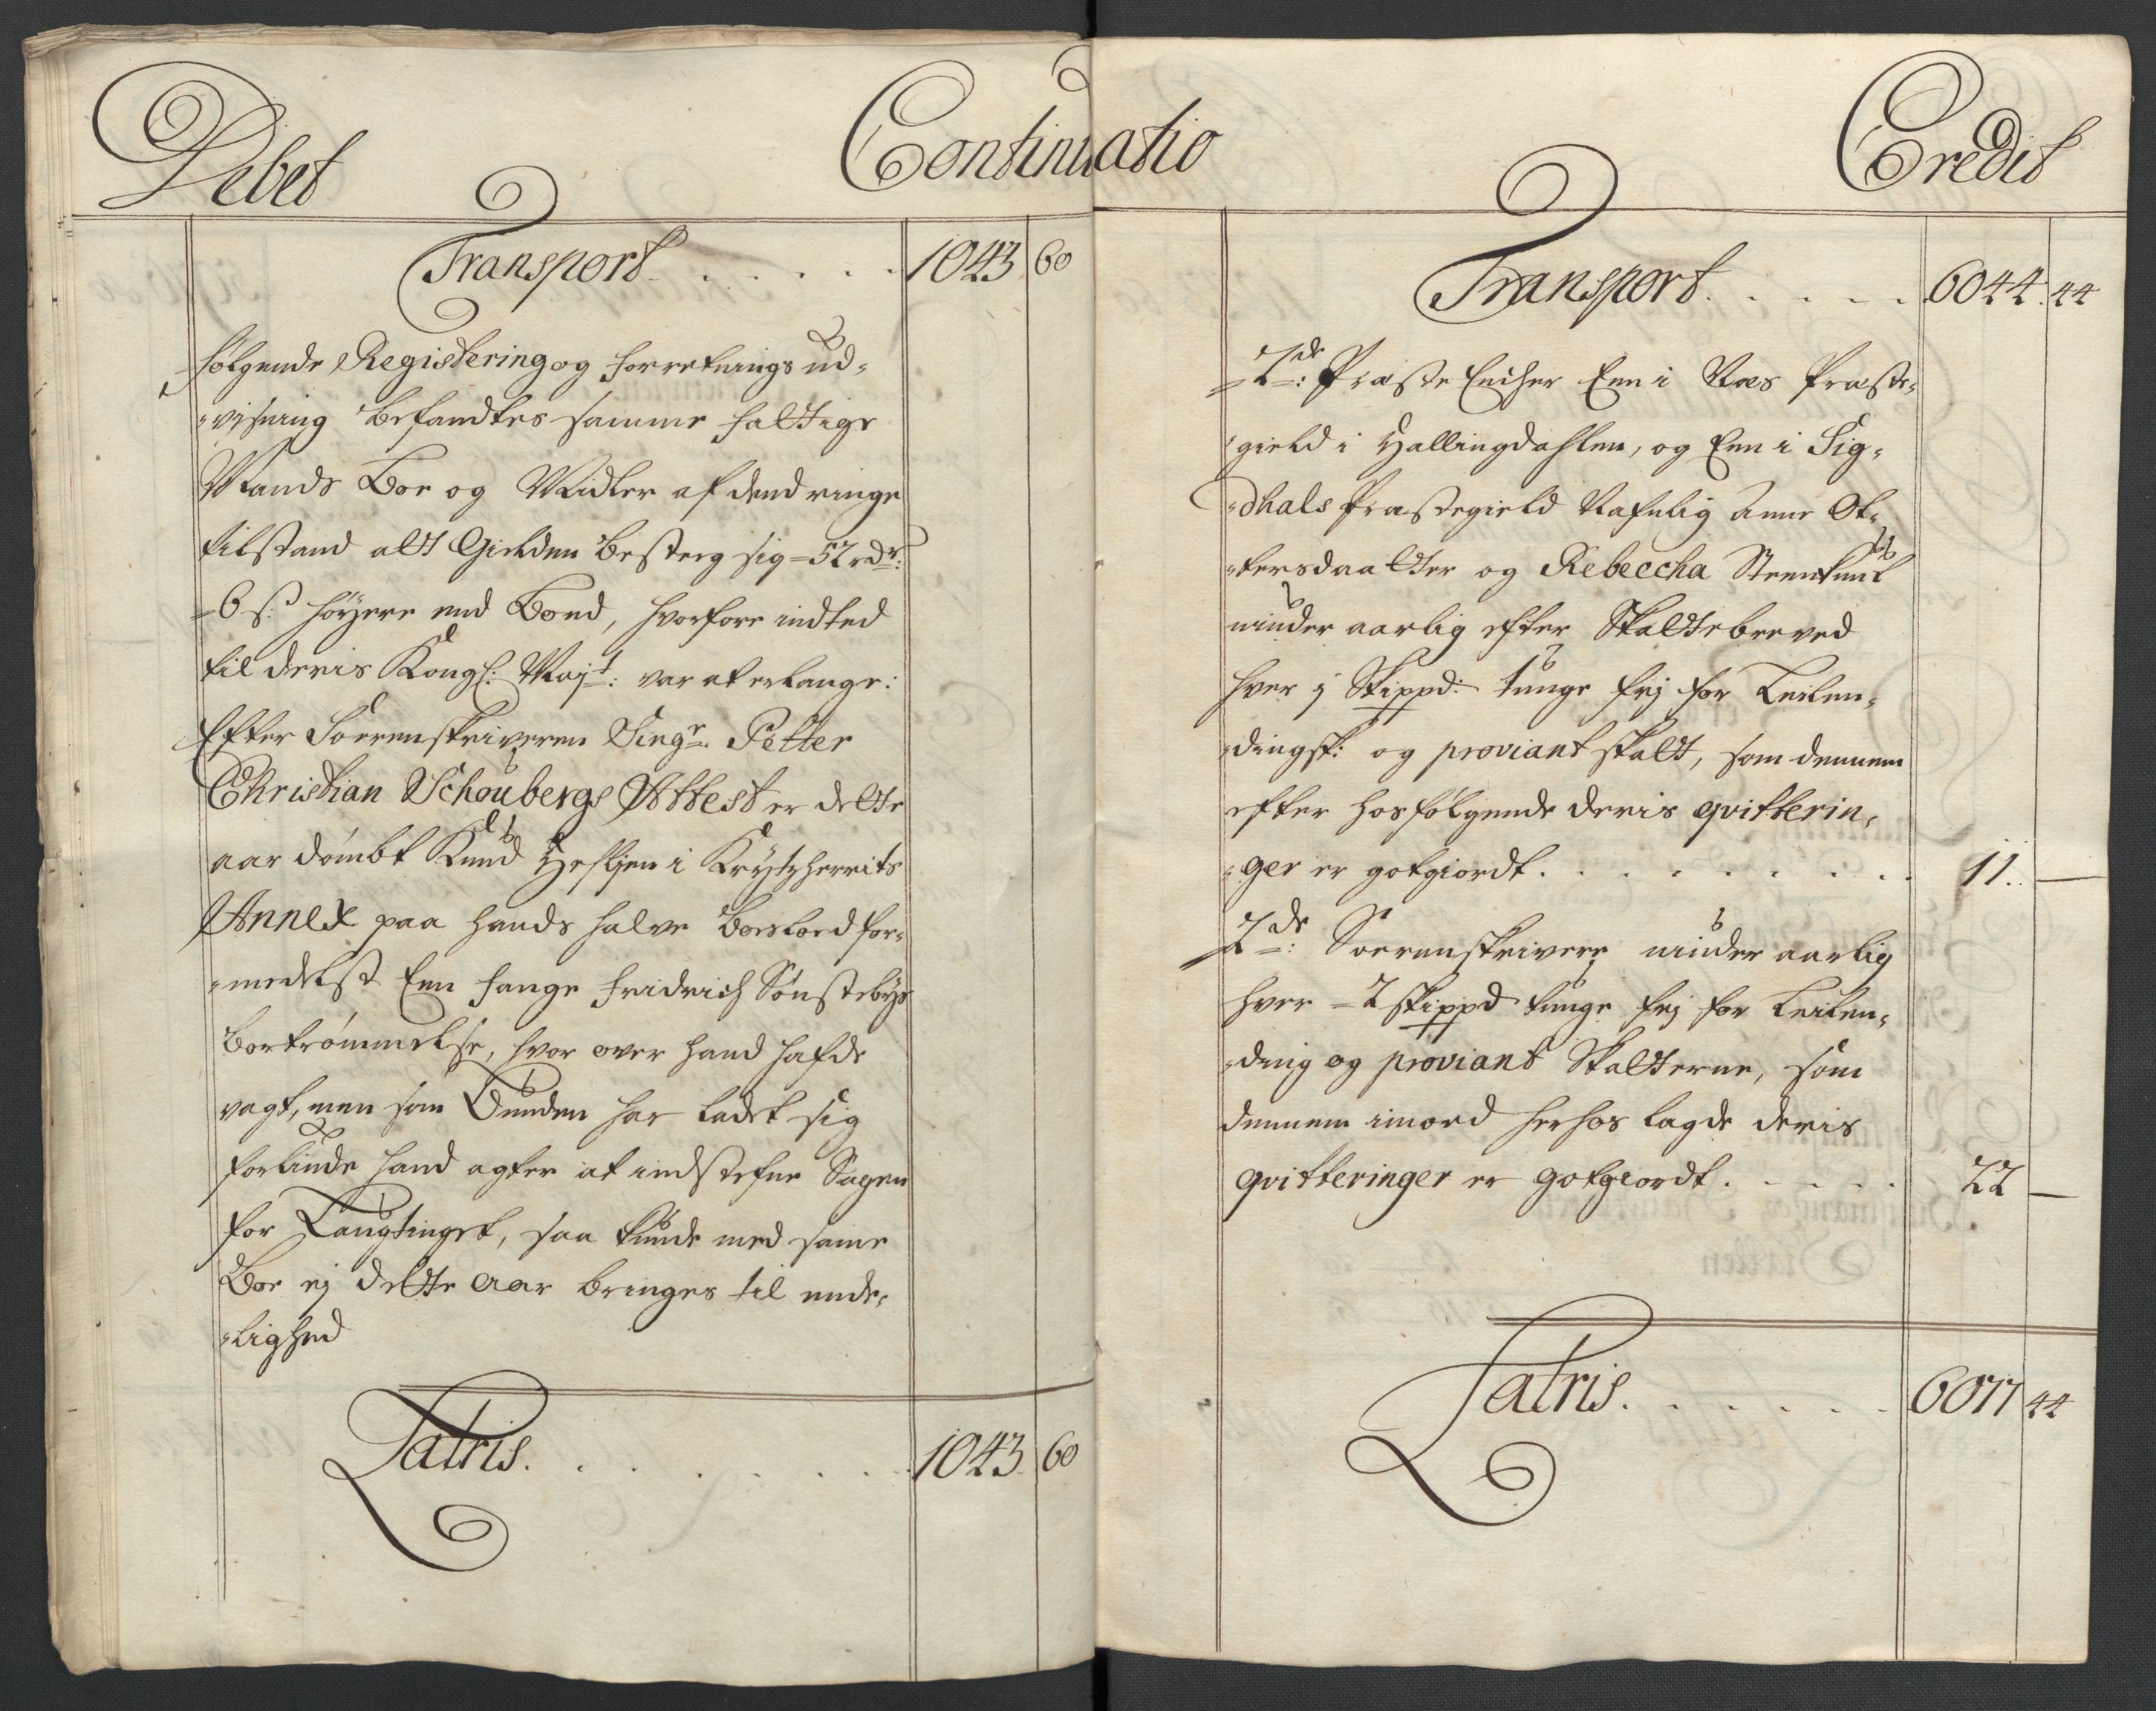 Debet
Continuatio
Credit
Transport . . . . . . 1043 60
følgende Registering og forretnings ud-
-visning befandtes samme fattige
Mands Boe og Midler af dend ringe
tilstand alt Gielden besteeg sig = 52 rdr:
= 6 s: høyere end Boed, hvorfore indted
til deris Kongl: Majt: var at erlange:
Efter Sorrenskriveren Singr. Petter
Christian Schoubergs Attest er dette
aar dømbt Knud i Krydtzherrits
Annex paa hands halve boeslod for-
-medelst Een fange Fridrich Sønstebyes
bortrømmelse, hvor over hand hafde
vagt, men som Bunden har ladet sig
forliude hand agter at indstefne Sagen
for Laugtinget, saa kunde med samme
Boe ej dette aar bringes til ende-
-lighed
Latris. . . . . . . 1043 60
Transport. . . . . 6044 44
= 2de: Præste Encher Een i Næs Præste-
gield i Hallingdahlen, og Een i Sig-
-dhals Præstegield Nafnlig Anne Ot-
-tersdaatter og Rebeccha Steenkuul
niuder aarlig efter Skattebreved
hver 1 Skippd: tunge frj for Leilen-
-dingsk: og proviant skatt, som dennem
efter hosfølgende deris qvitterin-
-ger er gotgiordt . . . . . . . . 11. —
2de: Sorrenskrivere niuder aarlig
hver = 2 skippd tunge frj for Leilen-
-ding og proviant Skatterne, som
dennem imod herhos lagde deris
qvitteringer er gotgiordt . . . . . 22 —
Latris. . . . . . 6077 44